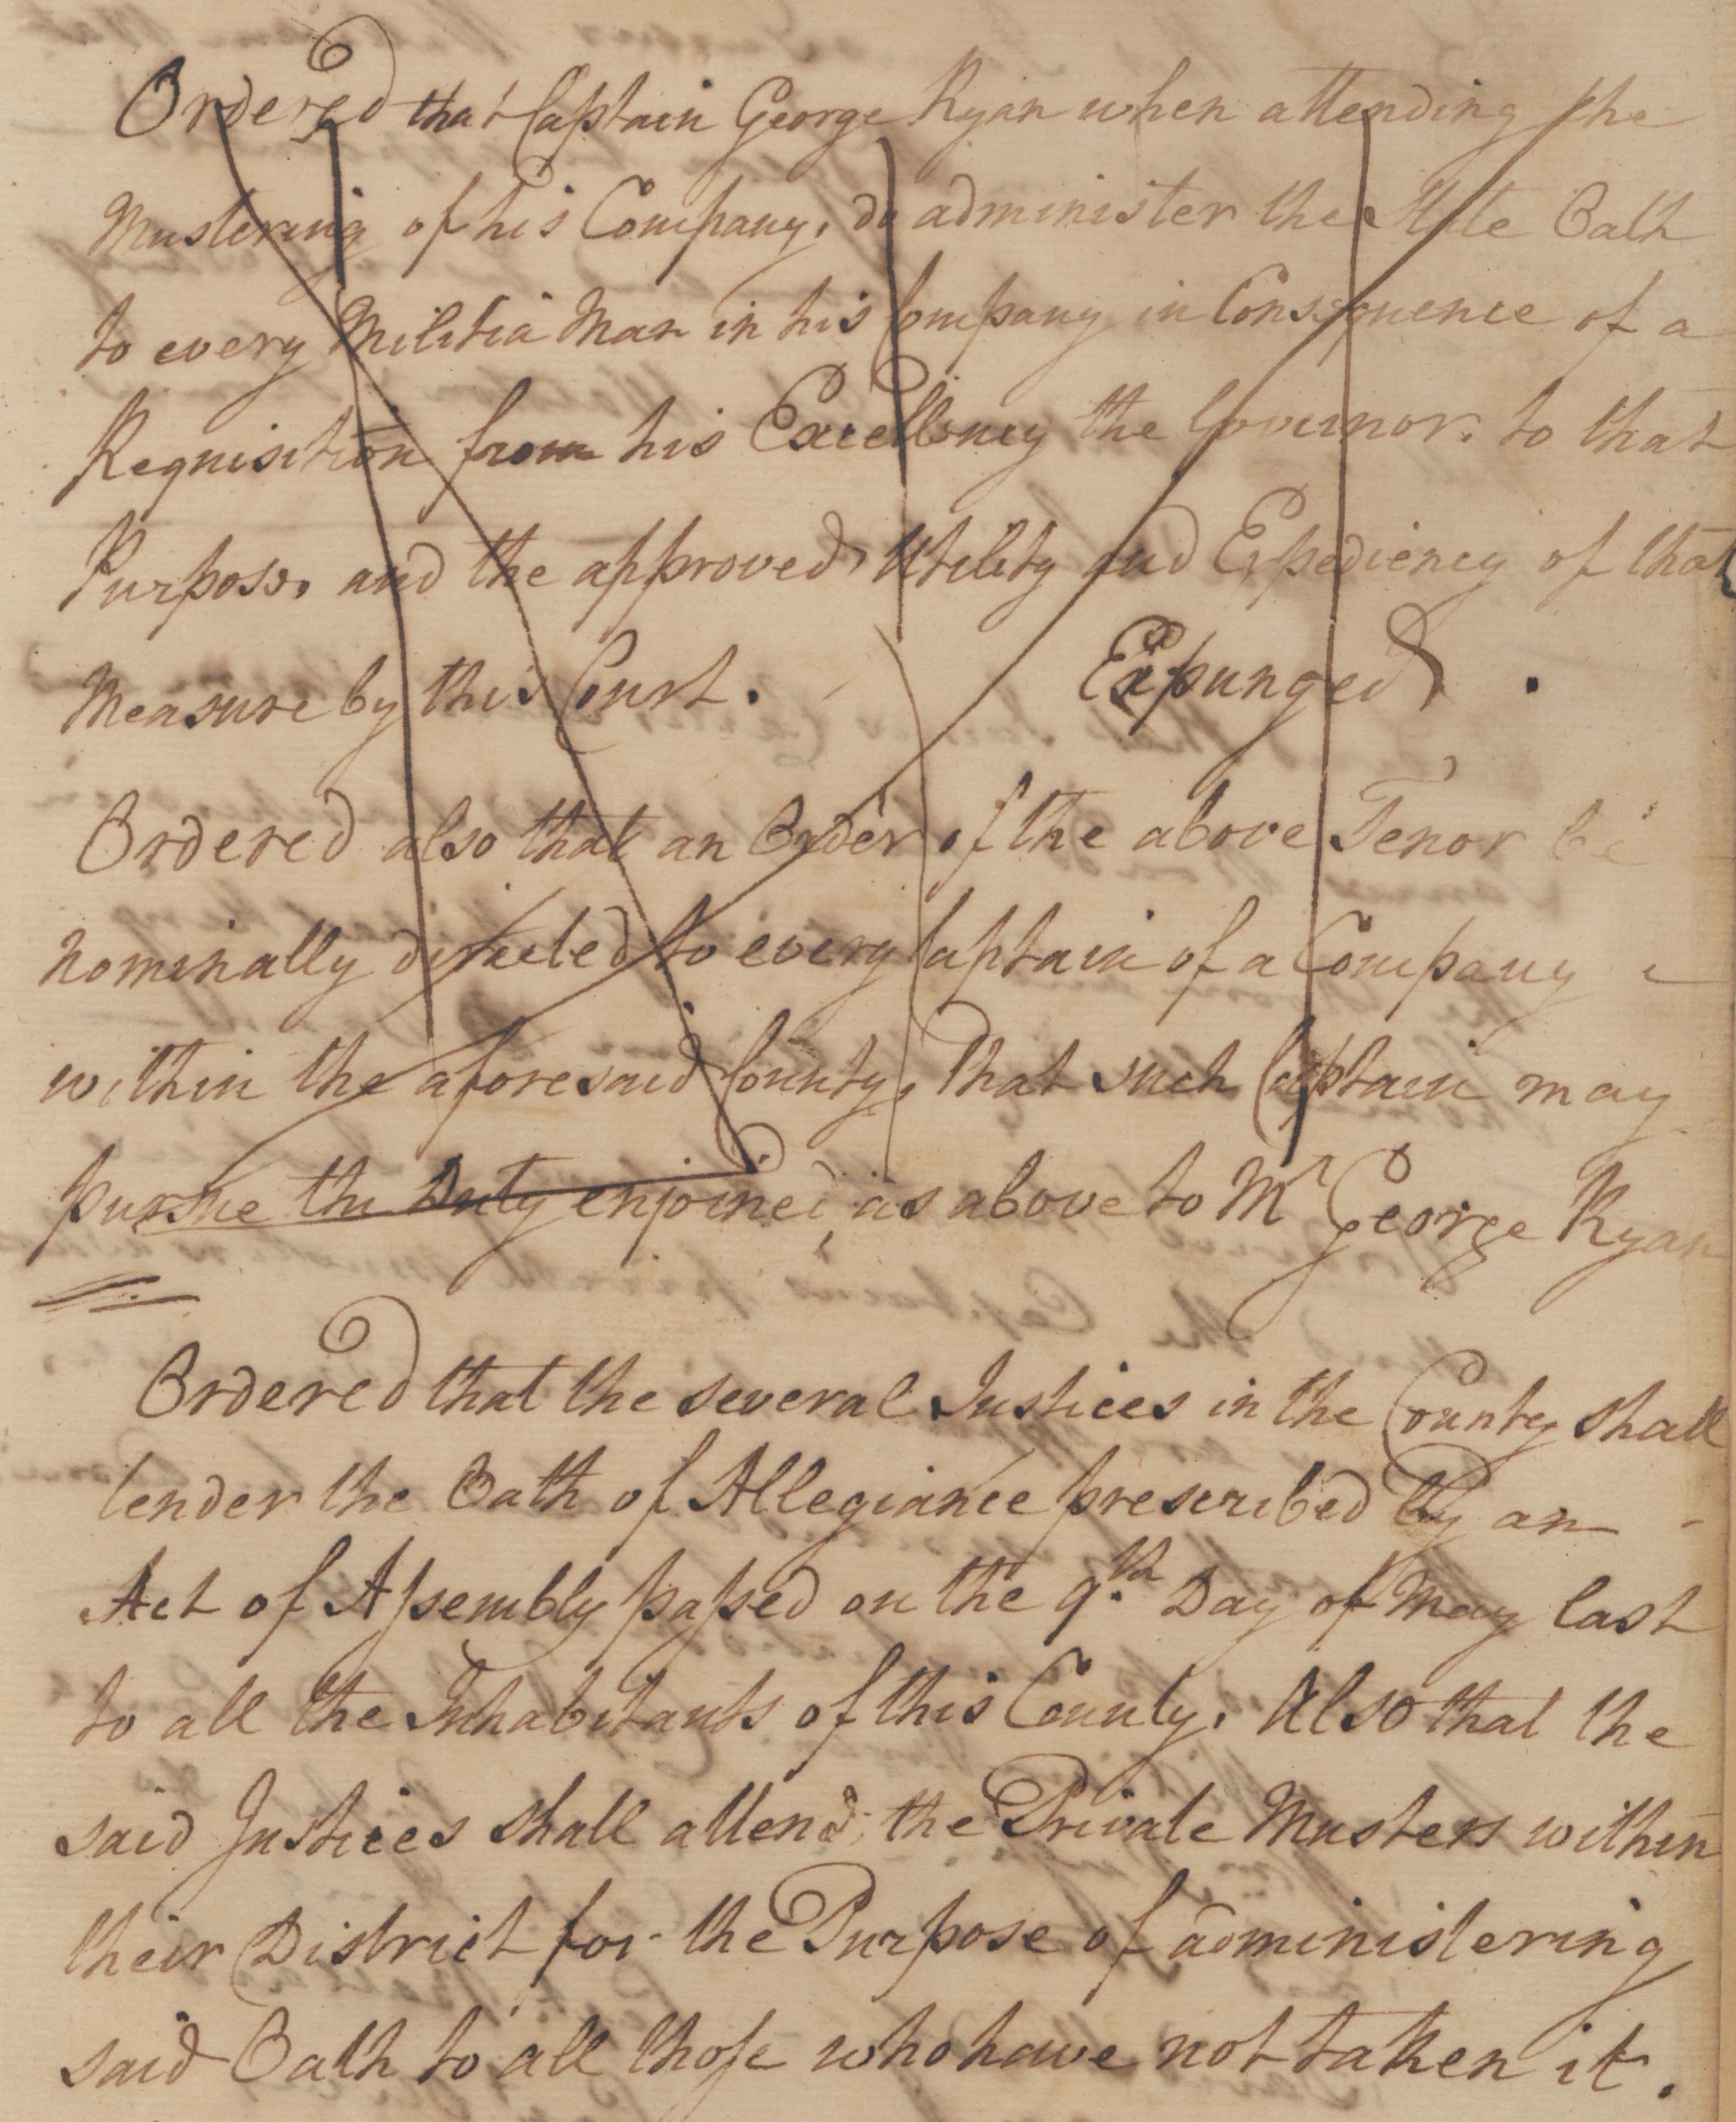 Ordered that Captain George Ryan when attending the
Mustering of his Company, do administer the State Oath
to every Militia Man in his Company in Consequence of a
Requisition from his Excellency the Governor. to that
Purpose, and the approved Utility and Expediency of that
Measure by this Court. Expunged.
Ordered also that an Order of the above Tenor be
nominally directed to every Captain of a Company
within the aforesaid County, That such Captain may
pursue the Duty enjoined as above to Mr George Ryan
Ordered that the several Justices in the County shall
tender the Oath of Allegiance prescribed By an
Act of Assembly passed on the 9.th Day of May last
to all the Inhabitants of this County. Also that the
said Justices shall attend the Private Musters within
their District for the Purpose of administering
said Oath to all those who have not taken it.